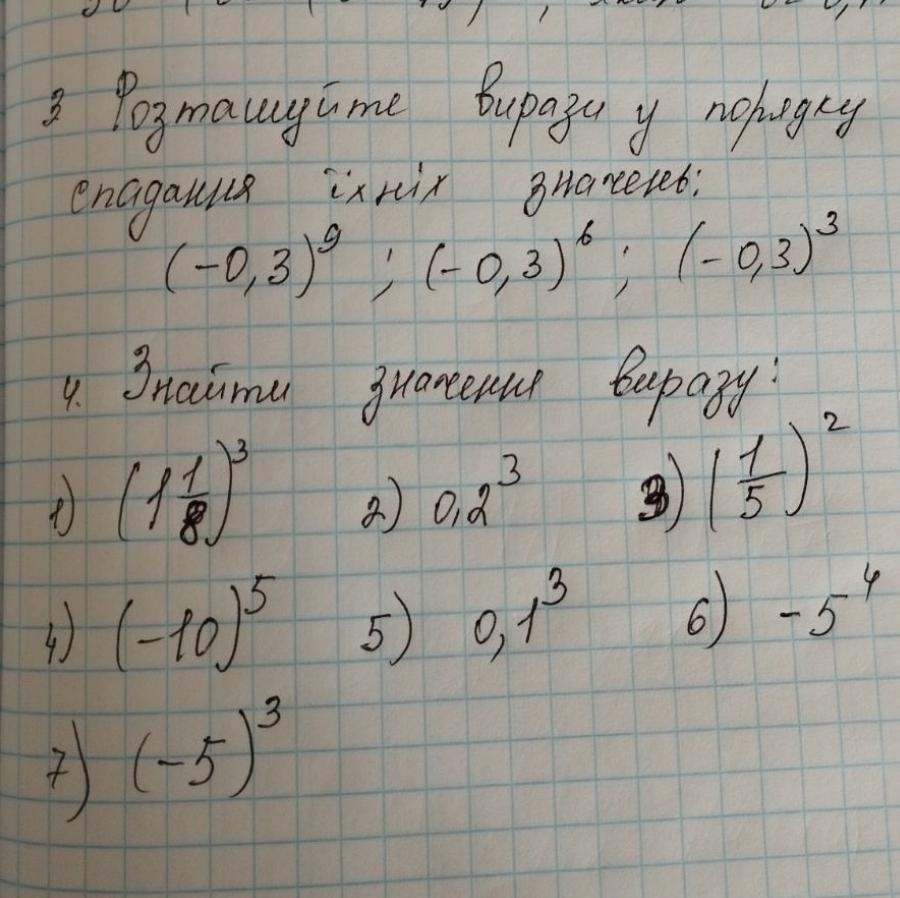 3 Розташуйте вирази у порядку
спадання їхніх значень:
(-0,3)⁹ ; (-0,3)⁶ ; (-0,3)³
4. Знайти значення виразу:
1) (1 1/8)³ 2) 0,2³ 3) (1/5)²
4) (-10)⁵ 5) 0,1³ 6) -5⁴
7) (-5)³